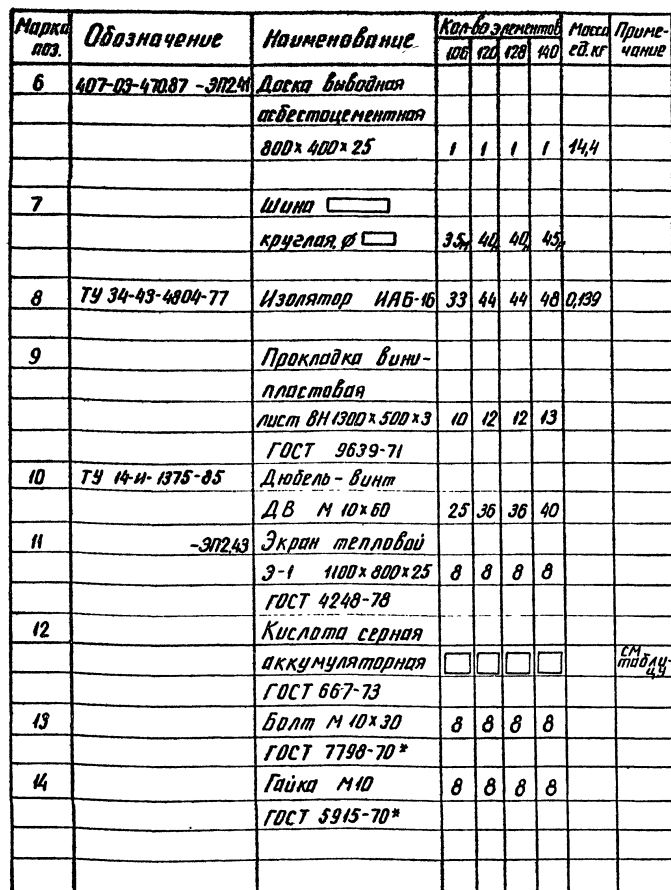 Марка поз. Обозначение Наименование Кол-во элементов Масса ед.кг Приме-чание
106 120 128 140
6 407-03-470.87 -ЭП2.41 Доска выводная
асбестоцементная
800×400×25 1 1 1 1 14,4
7 Шина
круглая, ø 35м 40м 40м 45м
8 ТУ 34-43-4804-77 Изолятор ИАБ-16 33 44 44 48 0,139
9 Прокладка вини-
пластовая
лист ВН 1300×500×3 10 12 12 13
ГОСТ 9639-71
10 ТУ 14-4-1375-85 Дюбель-винт
ДВ М 10×60 25 36 36 40
11 -ЭП2.43 Экран тепловой
Э-1 1100×800×25 8 8 8 8
ГОСТ 4248-78
12 Кислота серная
аккумуляторная см таблицу
ГОСТ 667-73
13 Болт М 10×30 8 8 8 8
ГОСТ 7798-70*
14 Гайка М10 8 8 8 8
ГОСТ 5915-70*